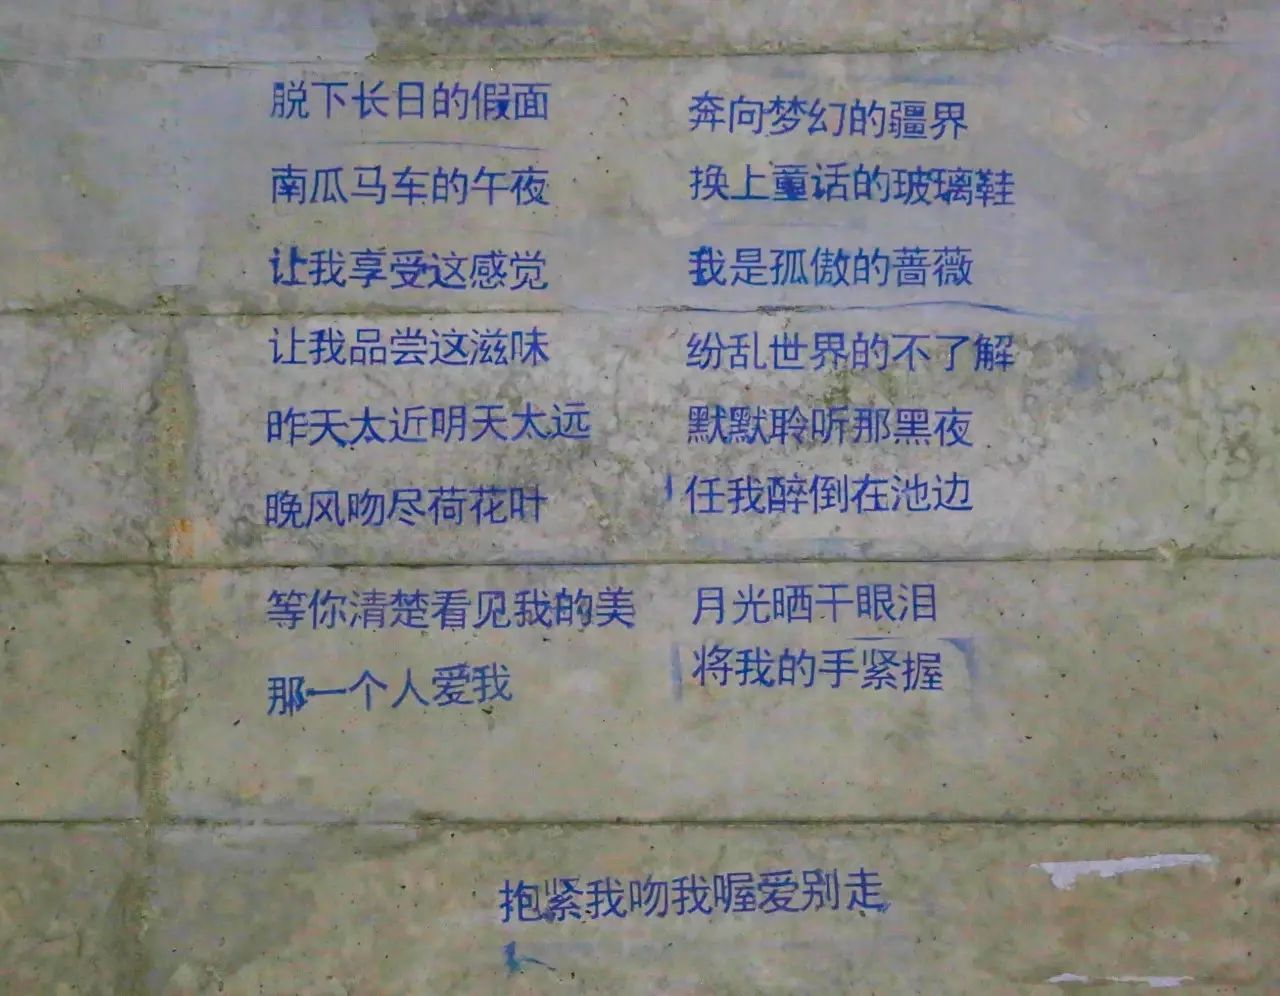 脱下长日的假面 奔向梦幻的疆界
南瓜马车的午夜 换上童话的玻璃鞋
让我享受这感觉 我是孤傲的蔷薇
让我品尝这滋味 纷乱世界的不了解
昨天太近明天太远 默默聆听那黑夜
晚风吻尽荷花叶 任我醉倒在池边
等你清楚看见我的美 月光晒干眼泪
那一个人爱我 将我的手紧握
抱紧我吻我喔爱别走